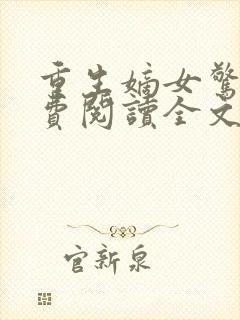 重生嫡女驚
費閱讀全文
官新泉